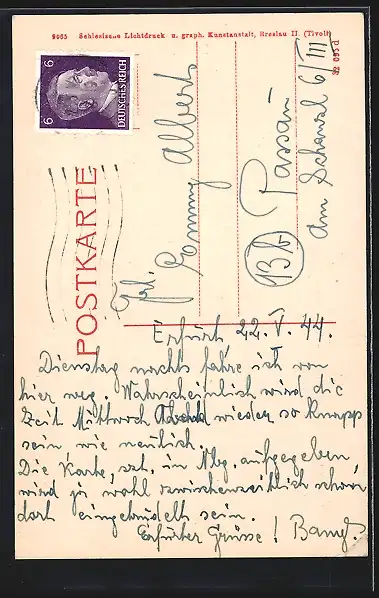 9965 Schlesische Lichtdruck u. graph. Kunstanstalt, Breslau II. (Tivoli)
DEUTSCHES REICH
6 6
POSTKARTE
Frl.
Albert
13b Passau
Am Schanzl 6/III
Erfurt 22. V. 44.
Dienstag nachts fahre ich von
hier weg. Wahrscheinlich wird die
Zeit Mittwoch Abend wieder so knapp
sein wie neulich.
Die Karte, szt. in Nbg. aufgegeben
wird ja wohl inzwischenzeitlich schon
dort eingetrudelt sein.
Erfurter Grüsse!